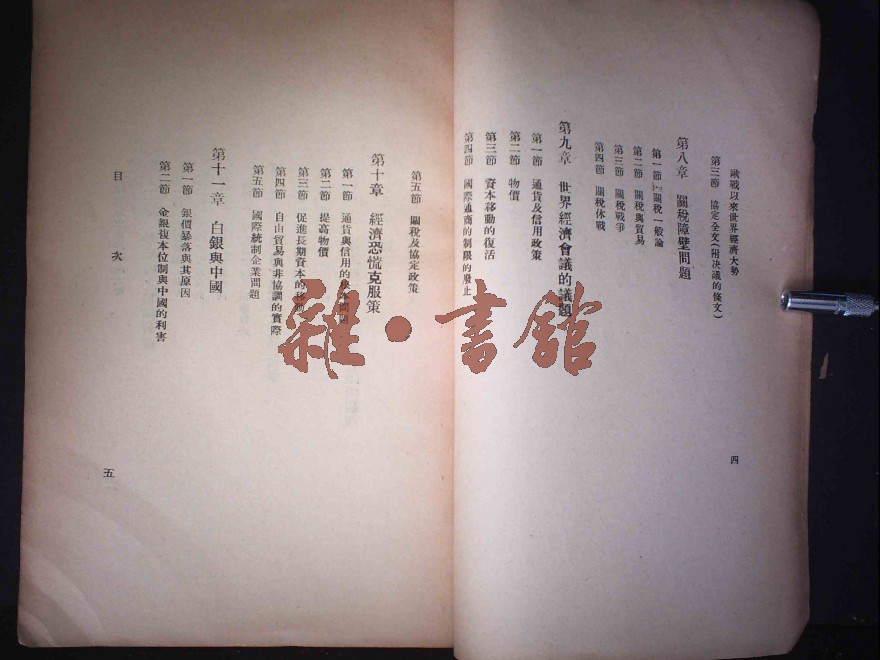 歐戰以來世界經濟大勢
第三節 協定全文(附決議的條文)
第八章 關稅障壁問題
第一節 關稅一般論
第二節 關稅與貿易
第三節 關稅戰爭
第四節 關稅休戰
第九章 世界經濟會議的議題
第一節 通貨及信用政策
第二節 物價
第三節 資本移動的復活
第四節 國際通商的制限的廢止
四
第五節 關稅及協定政策
第十章 經濟恐慌克服策
第一節 通貨與信用的問題
第二節 提高物價
第三節 促進長期資本的移
第四節 自由貿易與非協調的實際
第五節 國際統制企業問題
第十一章 白銀與中國
第一節 銀價暴落與其原因
第二節 金銀複本位制與中國的利害
目次
五
雜·書館